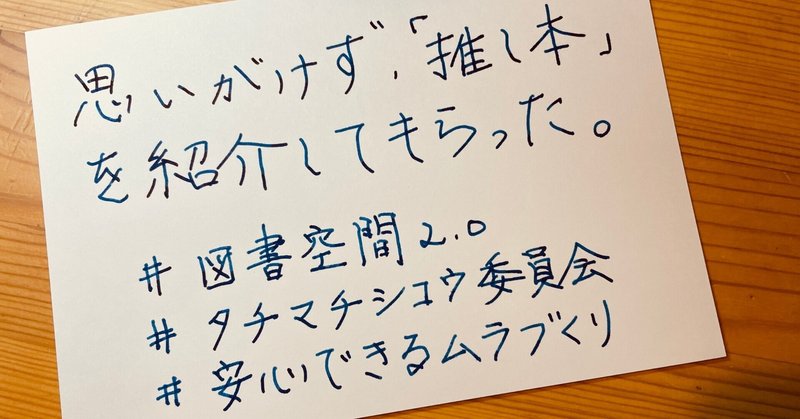 思いがけず、「推し本」
を紹介してもらった。
# 図書空間2.0
# タチマチシコウ委員会
# 安心できるムラづくり